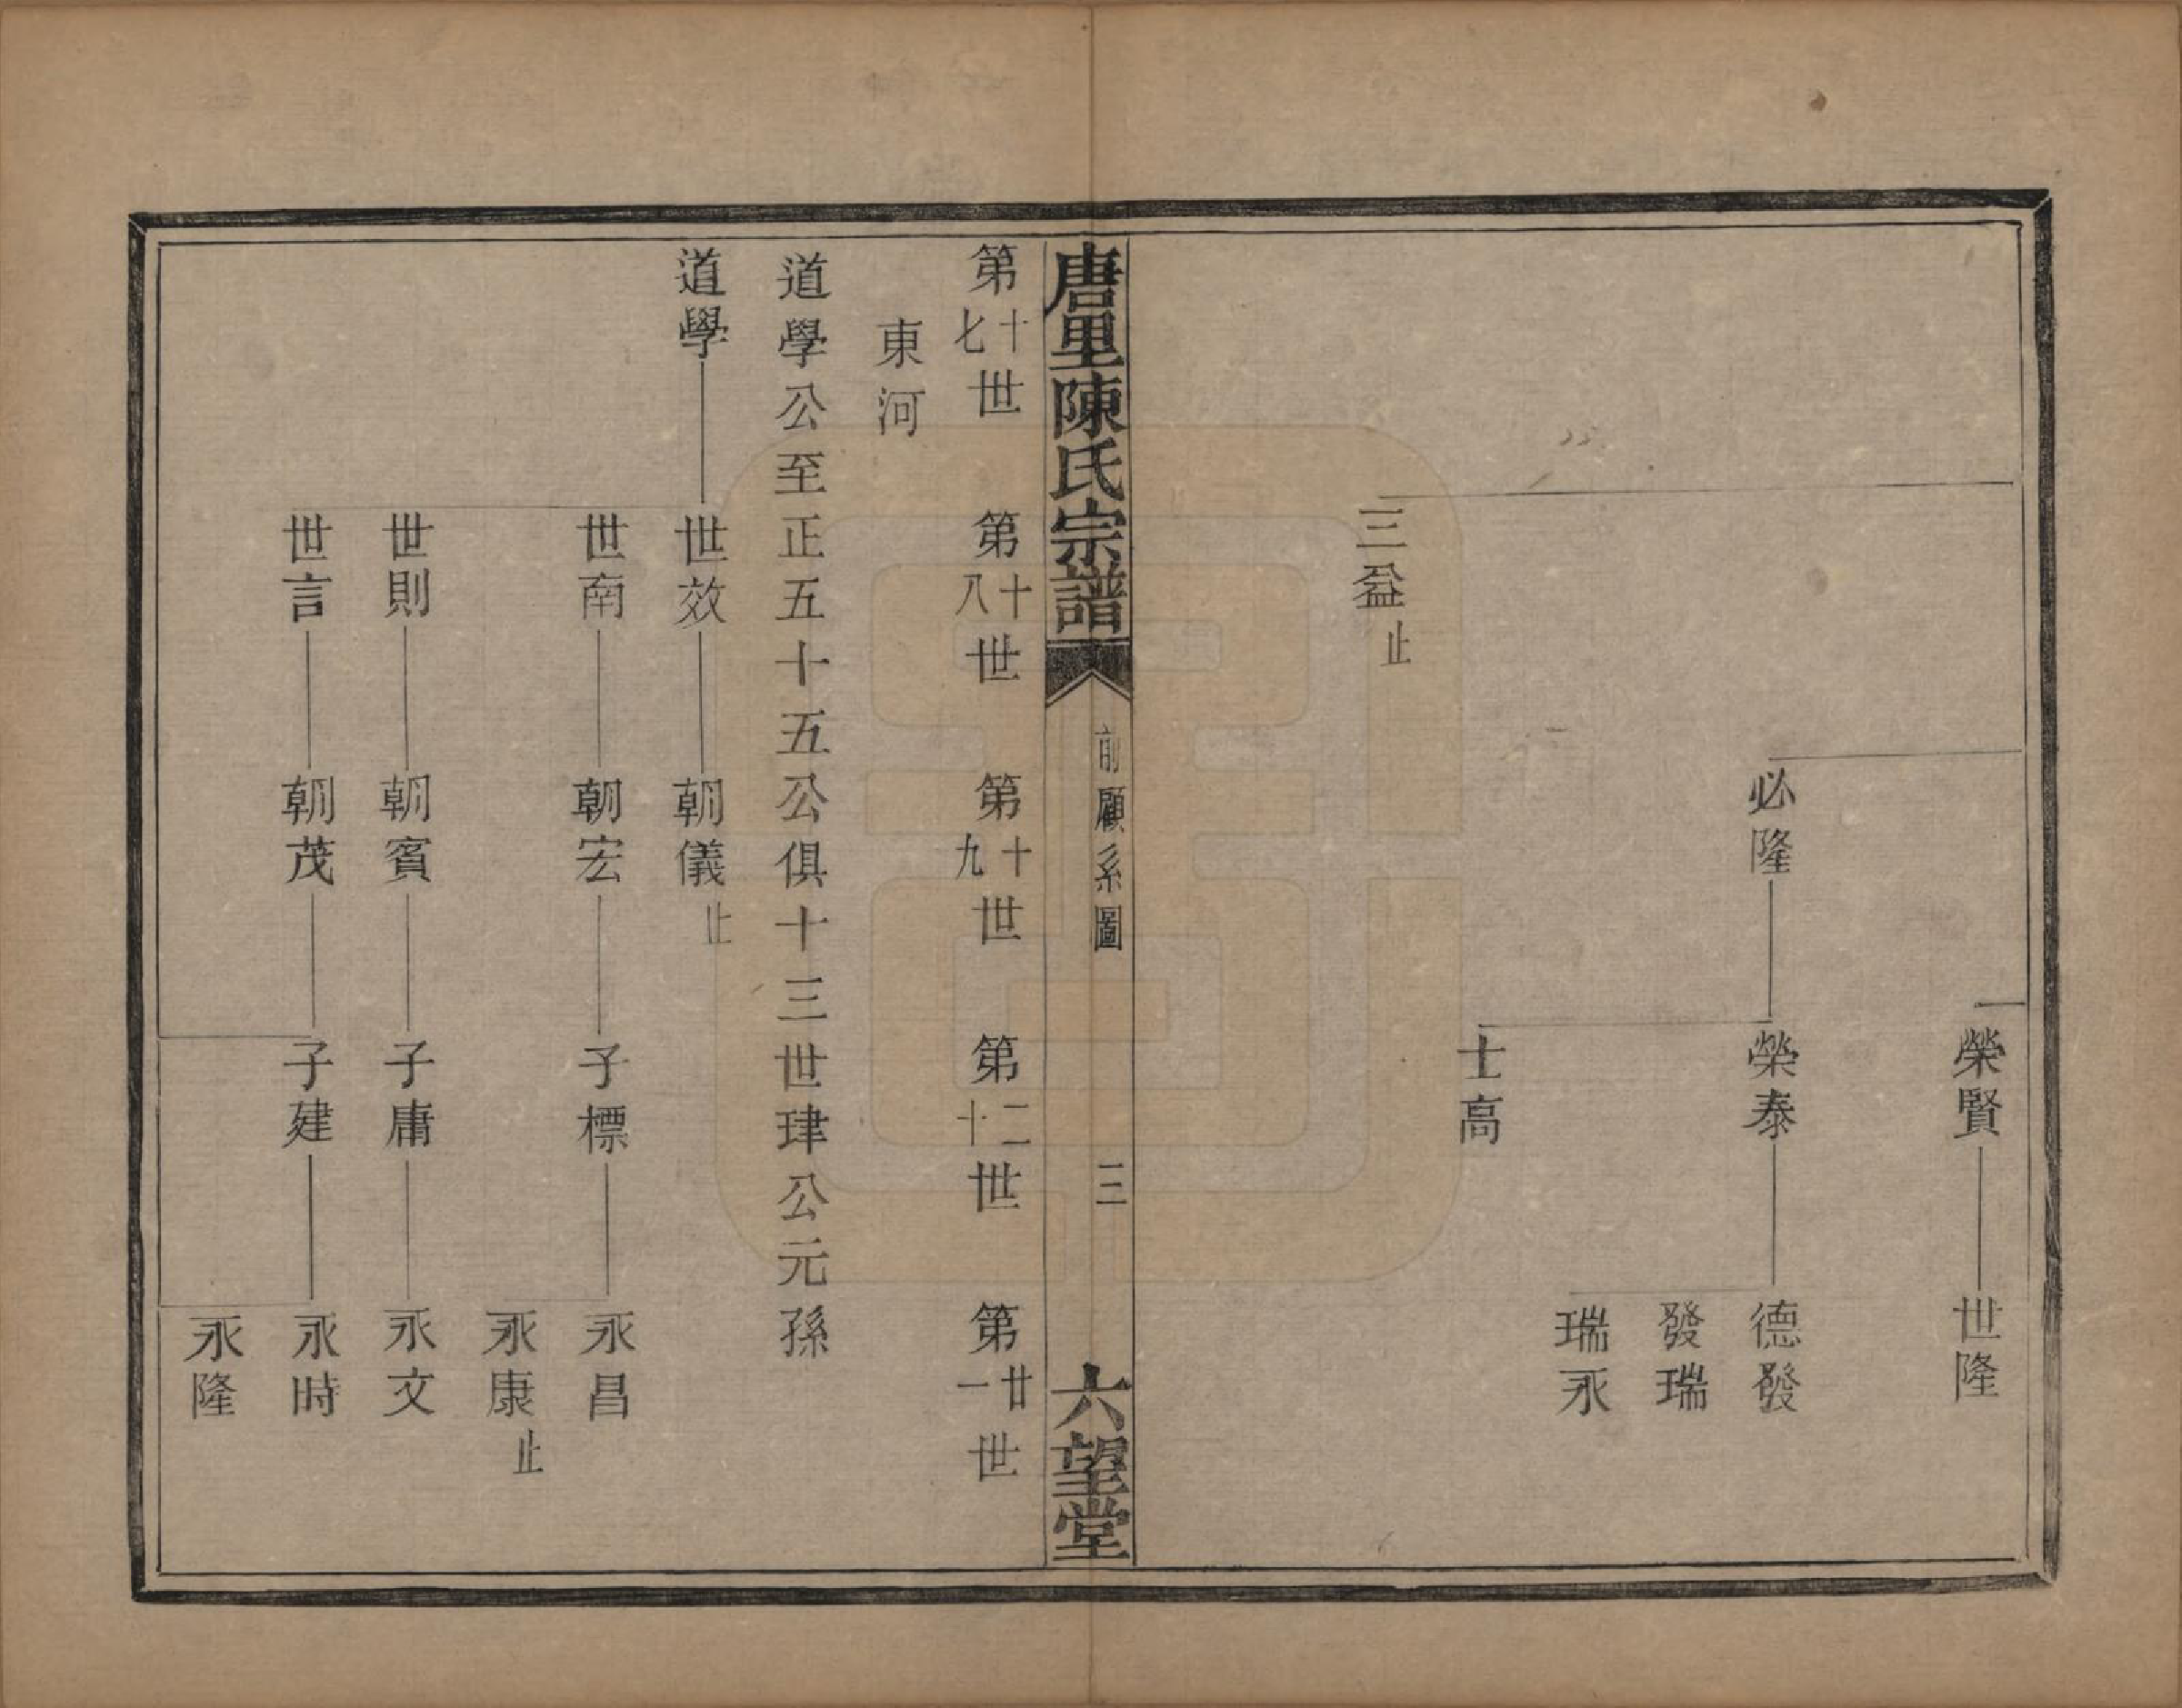 榮賢
世隆
必隆
榮泰
德發
發瑞
瑞永
士高
三益止
唐里陳氏宗譜
前顧系圖
三
六望堂
第十七世
第十八世
第十九世
第二十世
第廿一世
東河
道學公至正五十五公俱十三世肆公元孫
道學
世效
朝儀止
世南
朝宏
子標
永昌
永康止
世則
朝賓
子庸
永文
世言
朝茂
子建
永時
永隆